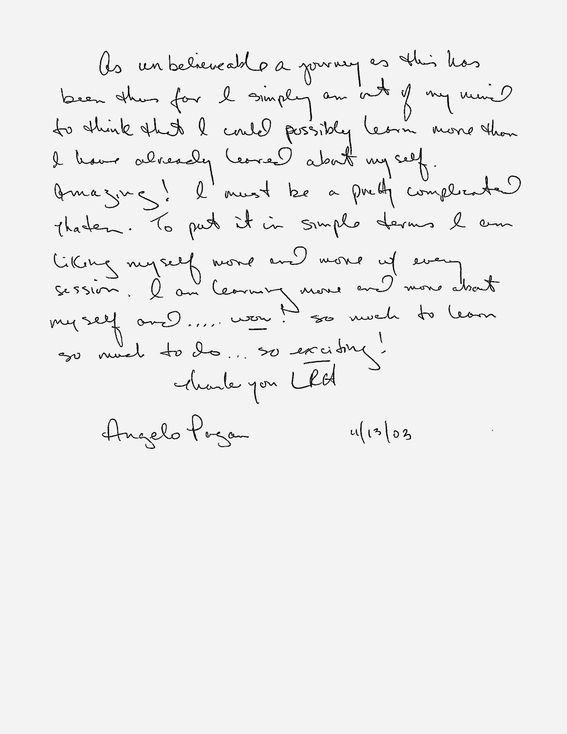 As unbelieveable a journey as this has
been thus far I simply am out of my mind
to think that I could possibly learn more than
I have already learned about myself.
Amazing! I must be a pretty complicated
thetan. To put it in simple terms I am
liking myself more and more w/ every
session. I am learning more and more about
myself and ..... wow! so much to learn
so much to do... so exciting!
Thank you LRH
Angelo Pagan 4/13/03